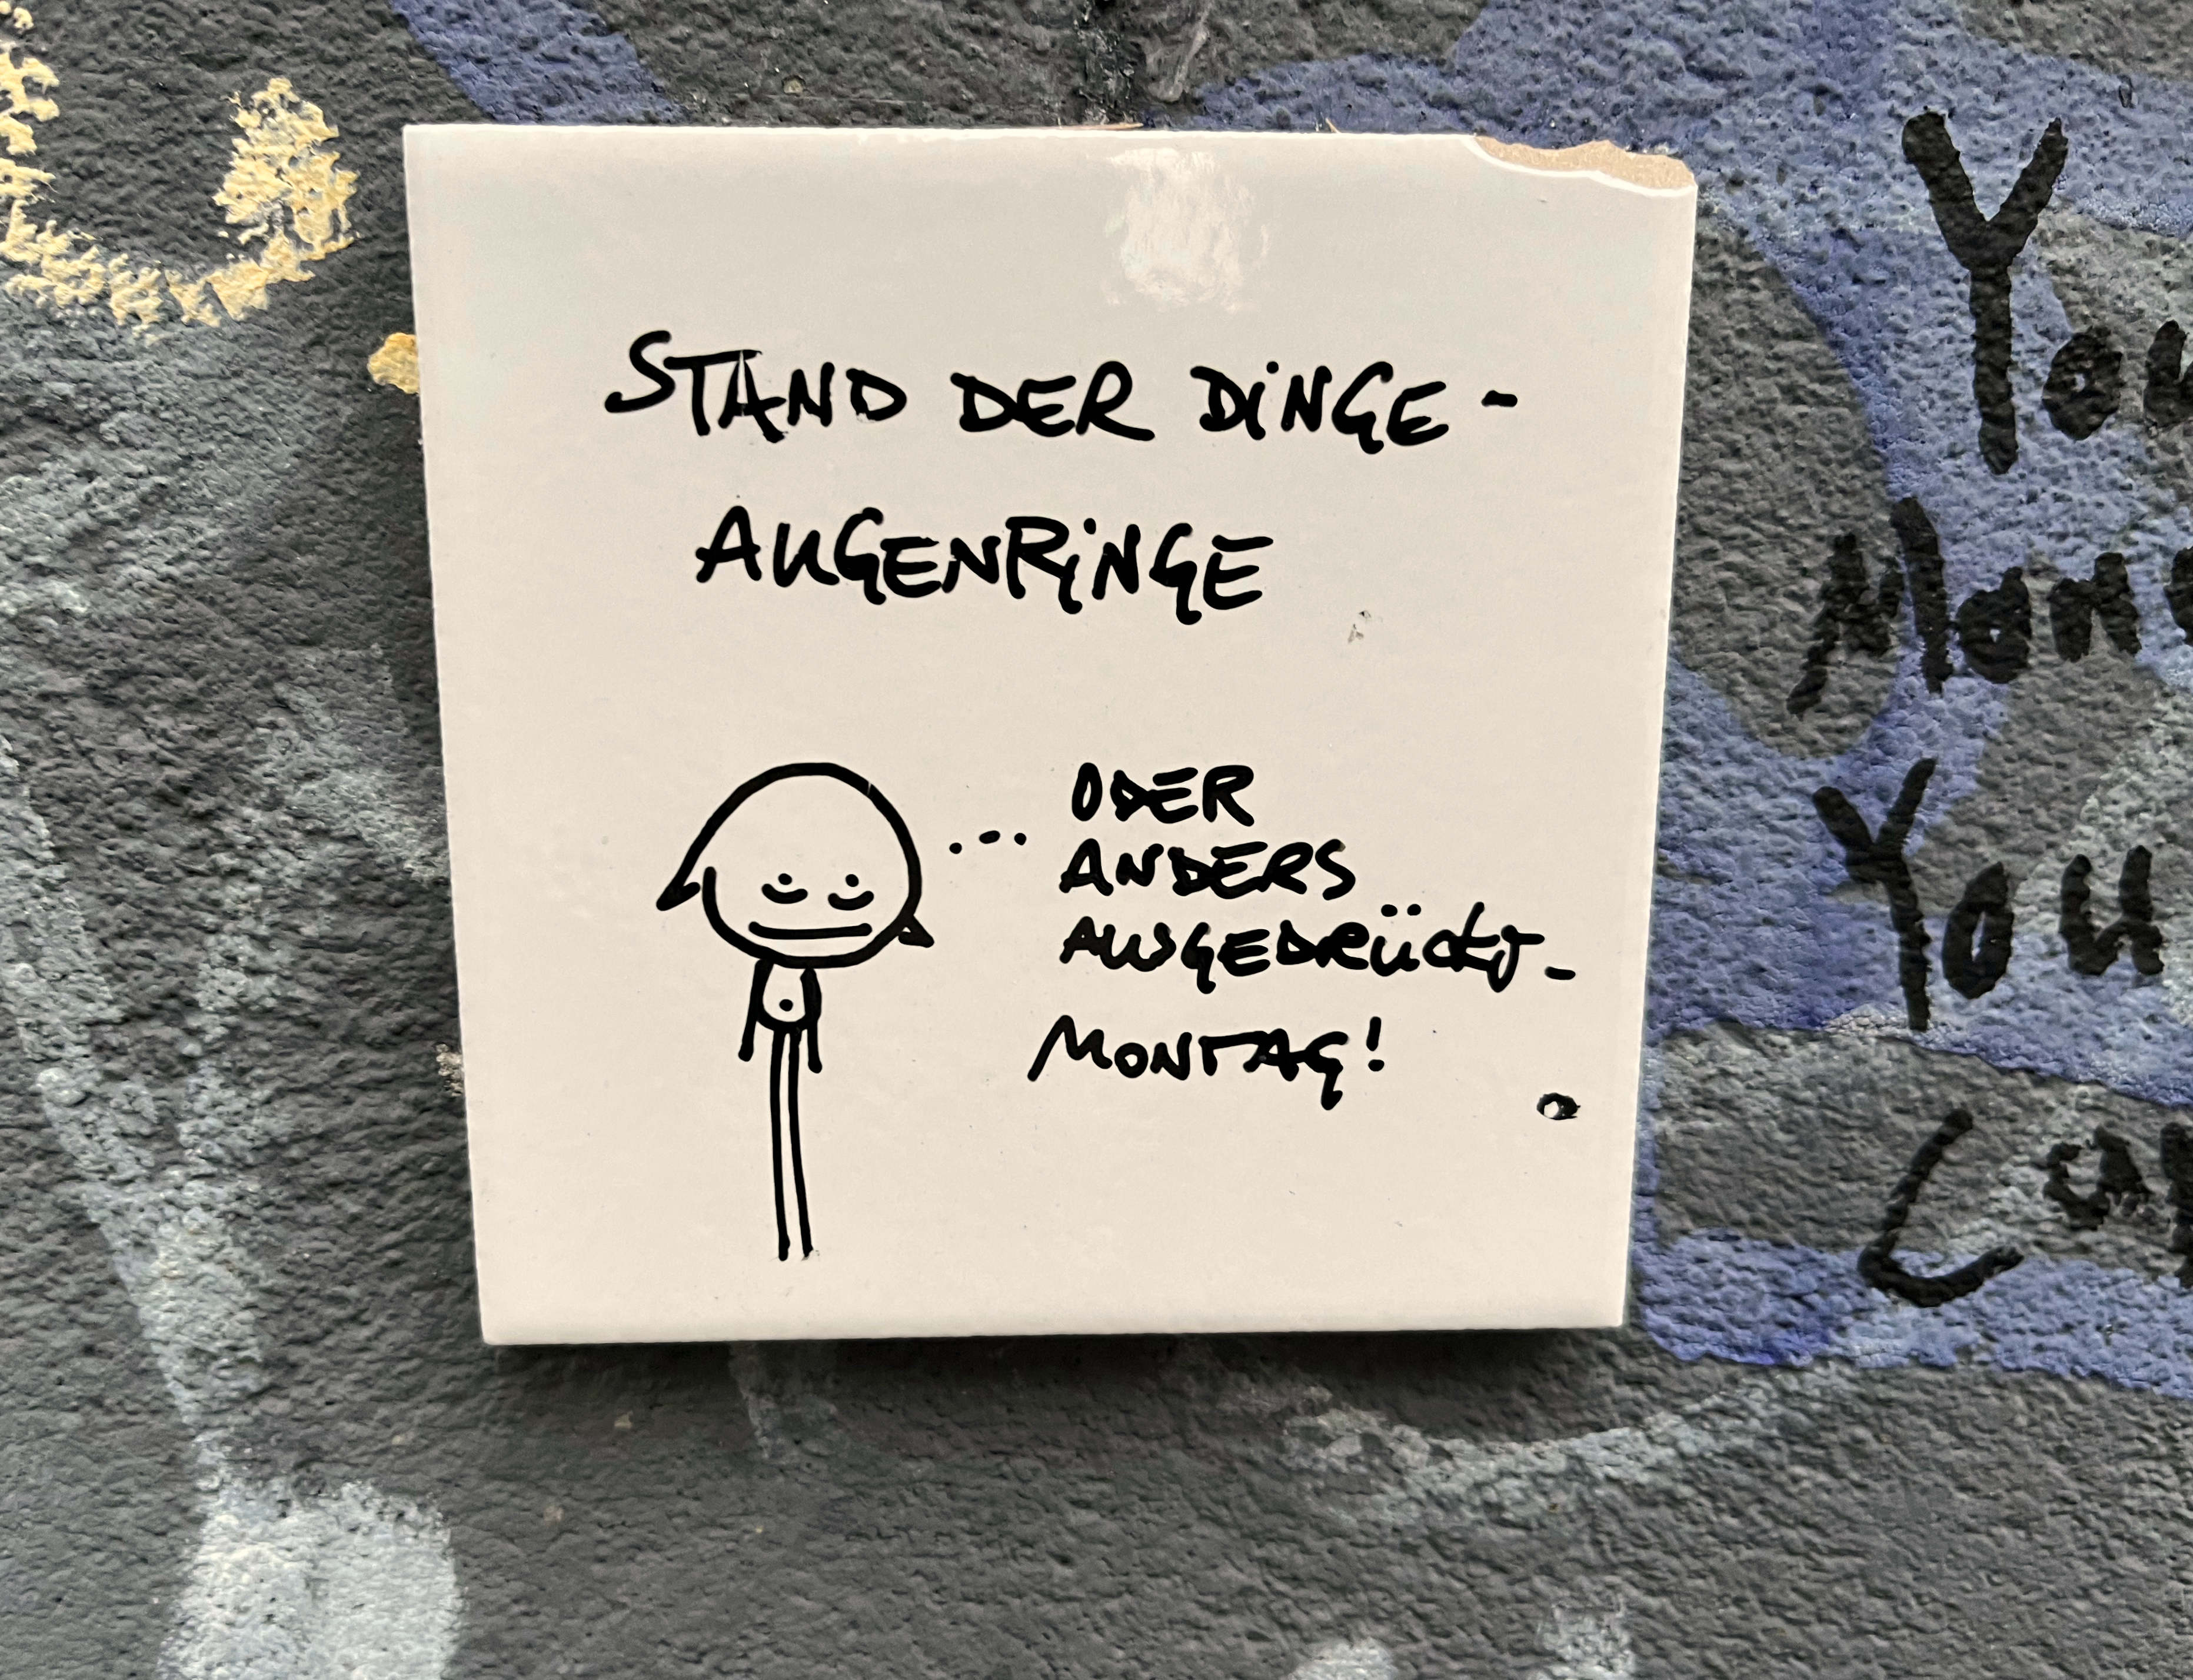 STAND DER DINGE -
AUGENRINGE
... ODER
ANDERS
AUSGEDRÜCKT -
MONTAG!
You